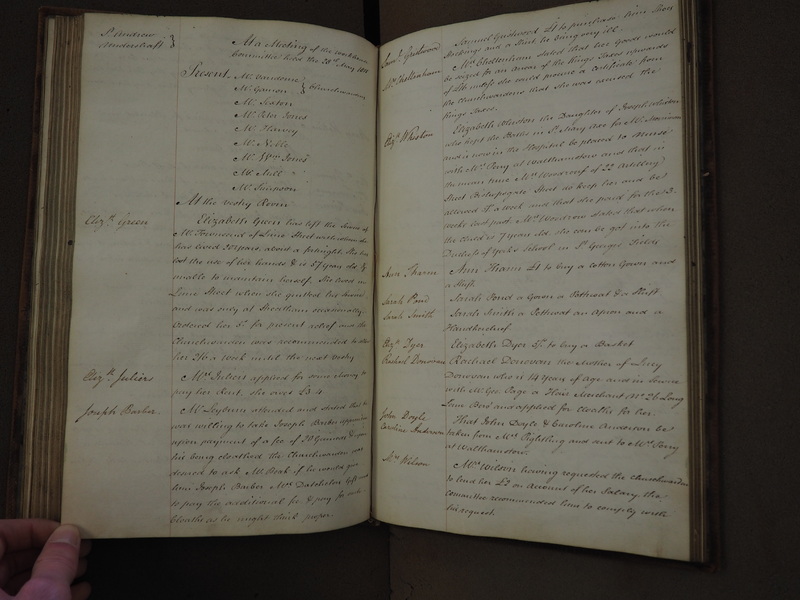 St Andrew
Undershaft
At a Meeting of the workhouse
Committee held the 28th May
Present
Mr Vandome
Mr Gamon
Churchwardens
Mr Sexton
Mr Peter Jones
Mr Harvey
Mr Noble
Mr Wm Jones
Mr Mill
Mr Simpson
At the vestry Room
Elizth Green
Elizabeth Green has left the Service of
Mr Townsend of Lime Street with whom she
has lived years, about a fortnight. She has
lost the use of her hands & is 57 years old, &
unable to maintain herself. She lived in
Lime Street when she quitted her service
and was only at Streatham occasionally
Ordered her for present relief and the
Churchwardens were recommended to allow
her a week until the next vestry
Elizth Juliers
Mrs Juliers applied for some money to
pay her Rent, she owes £3.4
Joseph Barber
Mr Leyburn attended and stated that he
was willing to take Joseph Barber apprentice
upon payment of a fee of 20 Guineas & upon
his being cloathed the Churchwardens was
desired to ask Mr Peak if he would give
him Joseph Barber Mrs Gift and
to pay the additional fee & pay for such
Cloaths as he might think proper.
Saml Gustwood
Samuel Gustwood £1 to purchase him Shoes
Stockings and a Shirt he being very ill.
Mrs Cheltenham
Mrs Cheltenham stated that her Goods would
be seized for an arrear of the Kings Taxes upwards
of £26 unless she could procure a certificate from
the Churchwardens that she was excused the
Kings Taxes.
Elizth Whiston
Elizabeth Whiston the Daughter of Joseph Whiston
who kept the Stables in St Mary Axe for Mr
and is now in the Hospital be placed to Nurse
with Mrs Perry at Walthamstow and that in
the mean time Mrs Woodrow of 22 Artillery
Street Bishopsgate Street do keep her and be
allowed a week and that she paid for the 3
weeks last past. Mrs Woodrow states that when
the child is 7 years old she can be got into the
Duke of York's School in St Georges Fields
Ann Thann
Ann Thann £1 to buy a Cotton Gown and
a Shift.
Sarah Pond
Sarah Pond a Gown a Petticoat & a Shift.
Sarah Smith
Sarah Smith a Petticoat an Apron and a
Handkerchief
Elizth Dyer
Elizabeth Dyer to buy a Basket
Rachael Donovan
Rachael Donovan the Mother of Lucy
Donovan who is 14 years of Age and in Service
with Mr Geo. Page a Hair Merchant No 26 Long
Lane Boro' and applied for Cloaths for her.
John Doyle
Caroline Anderson
That John Doyle & Caroline Anderson be
taken from Mrs Rightling and sent to Mrs Perry
at Walthamstow.
Mrs Wilson
Mrs Wilson having requested the Churchwarden
to lend her £2 on Account of her Salary, the
committee recommended him to comply with
his request.